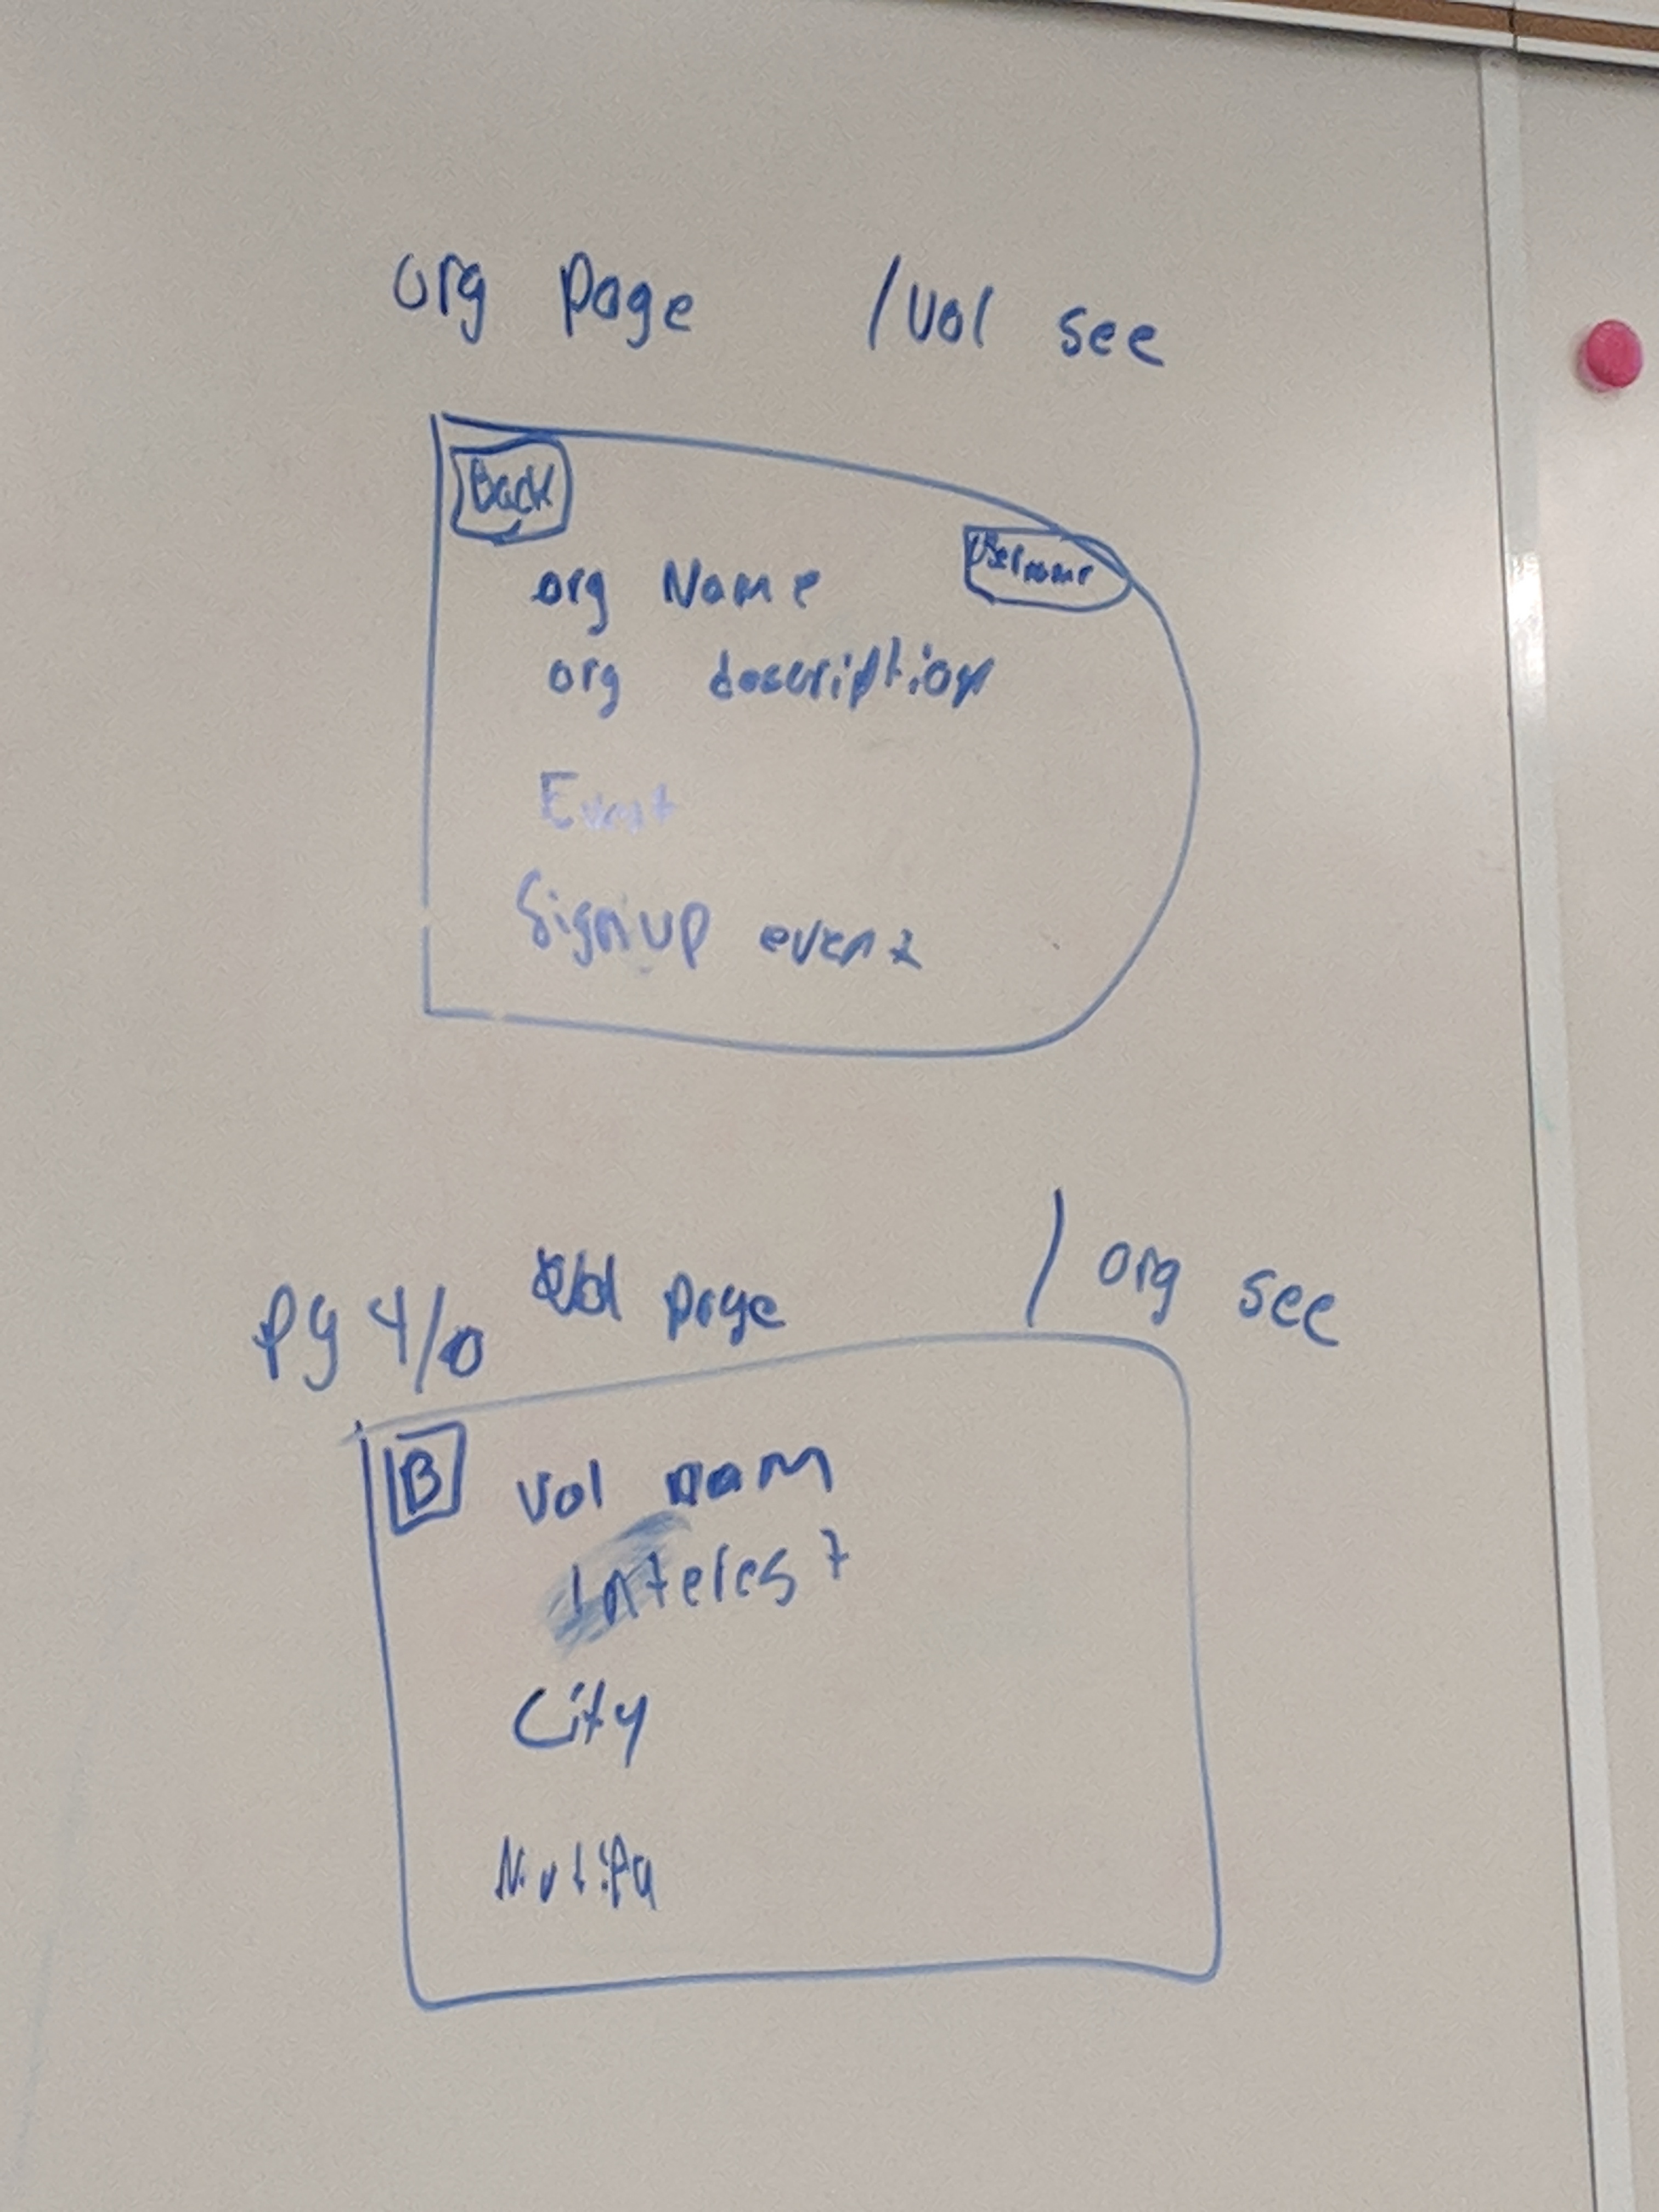 org Page /Vol see
Back
Username
org Name
org description
Event
Signup event
Pg 4/0 Vol page / org see
B Vol nam
Interest
City